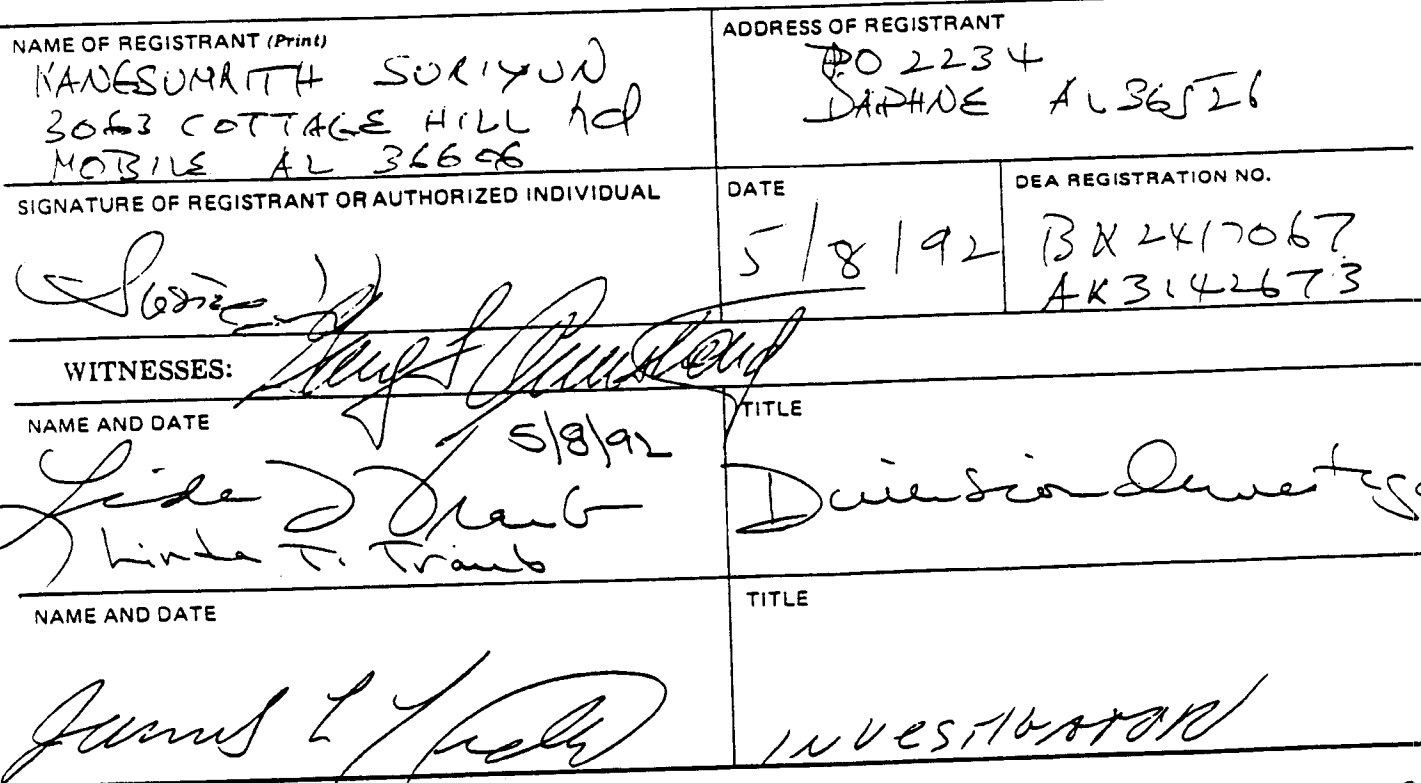 NAME OF REGISTRANT (Print)
KANESUMRITH SURIYUN
3063 COTTAGE HILL Rd
MOBILE AL 36606
ADDRESS OF REGISTRANT
PO 2234
DAPHNE AL 36526
SIGNATURE OF REGISTRANT OR AUTHORIZED INDIVIDUAL
DATE
5/8/92
DEA REGISTRATION NO.
BK2417067
AK3142673
WITNESSES:
NAME AND DATE
5/8/92
Linda T. Traub
Linda T. Traub
TITLE
Diversion Investiga
NAME AND DATE
James L
TITLE
INVESTIGATOR